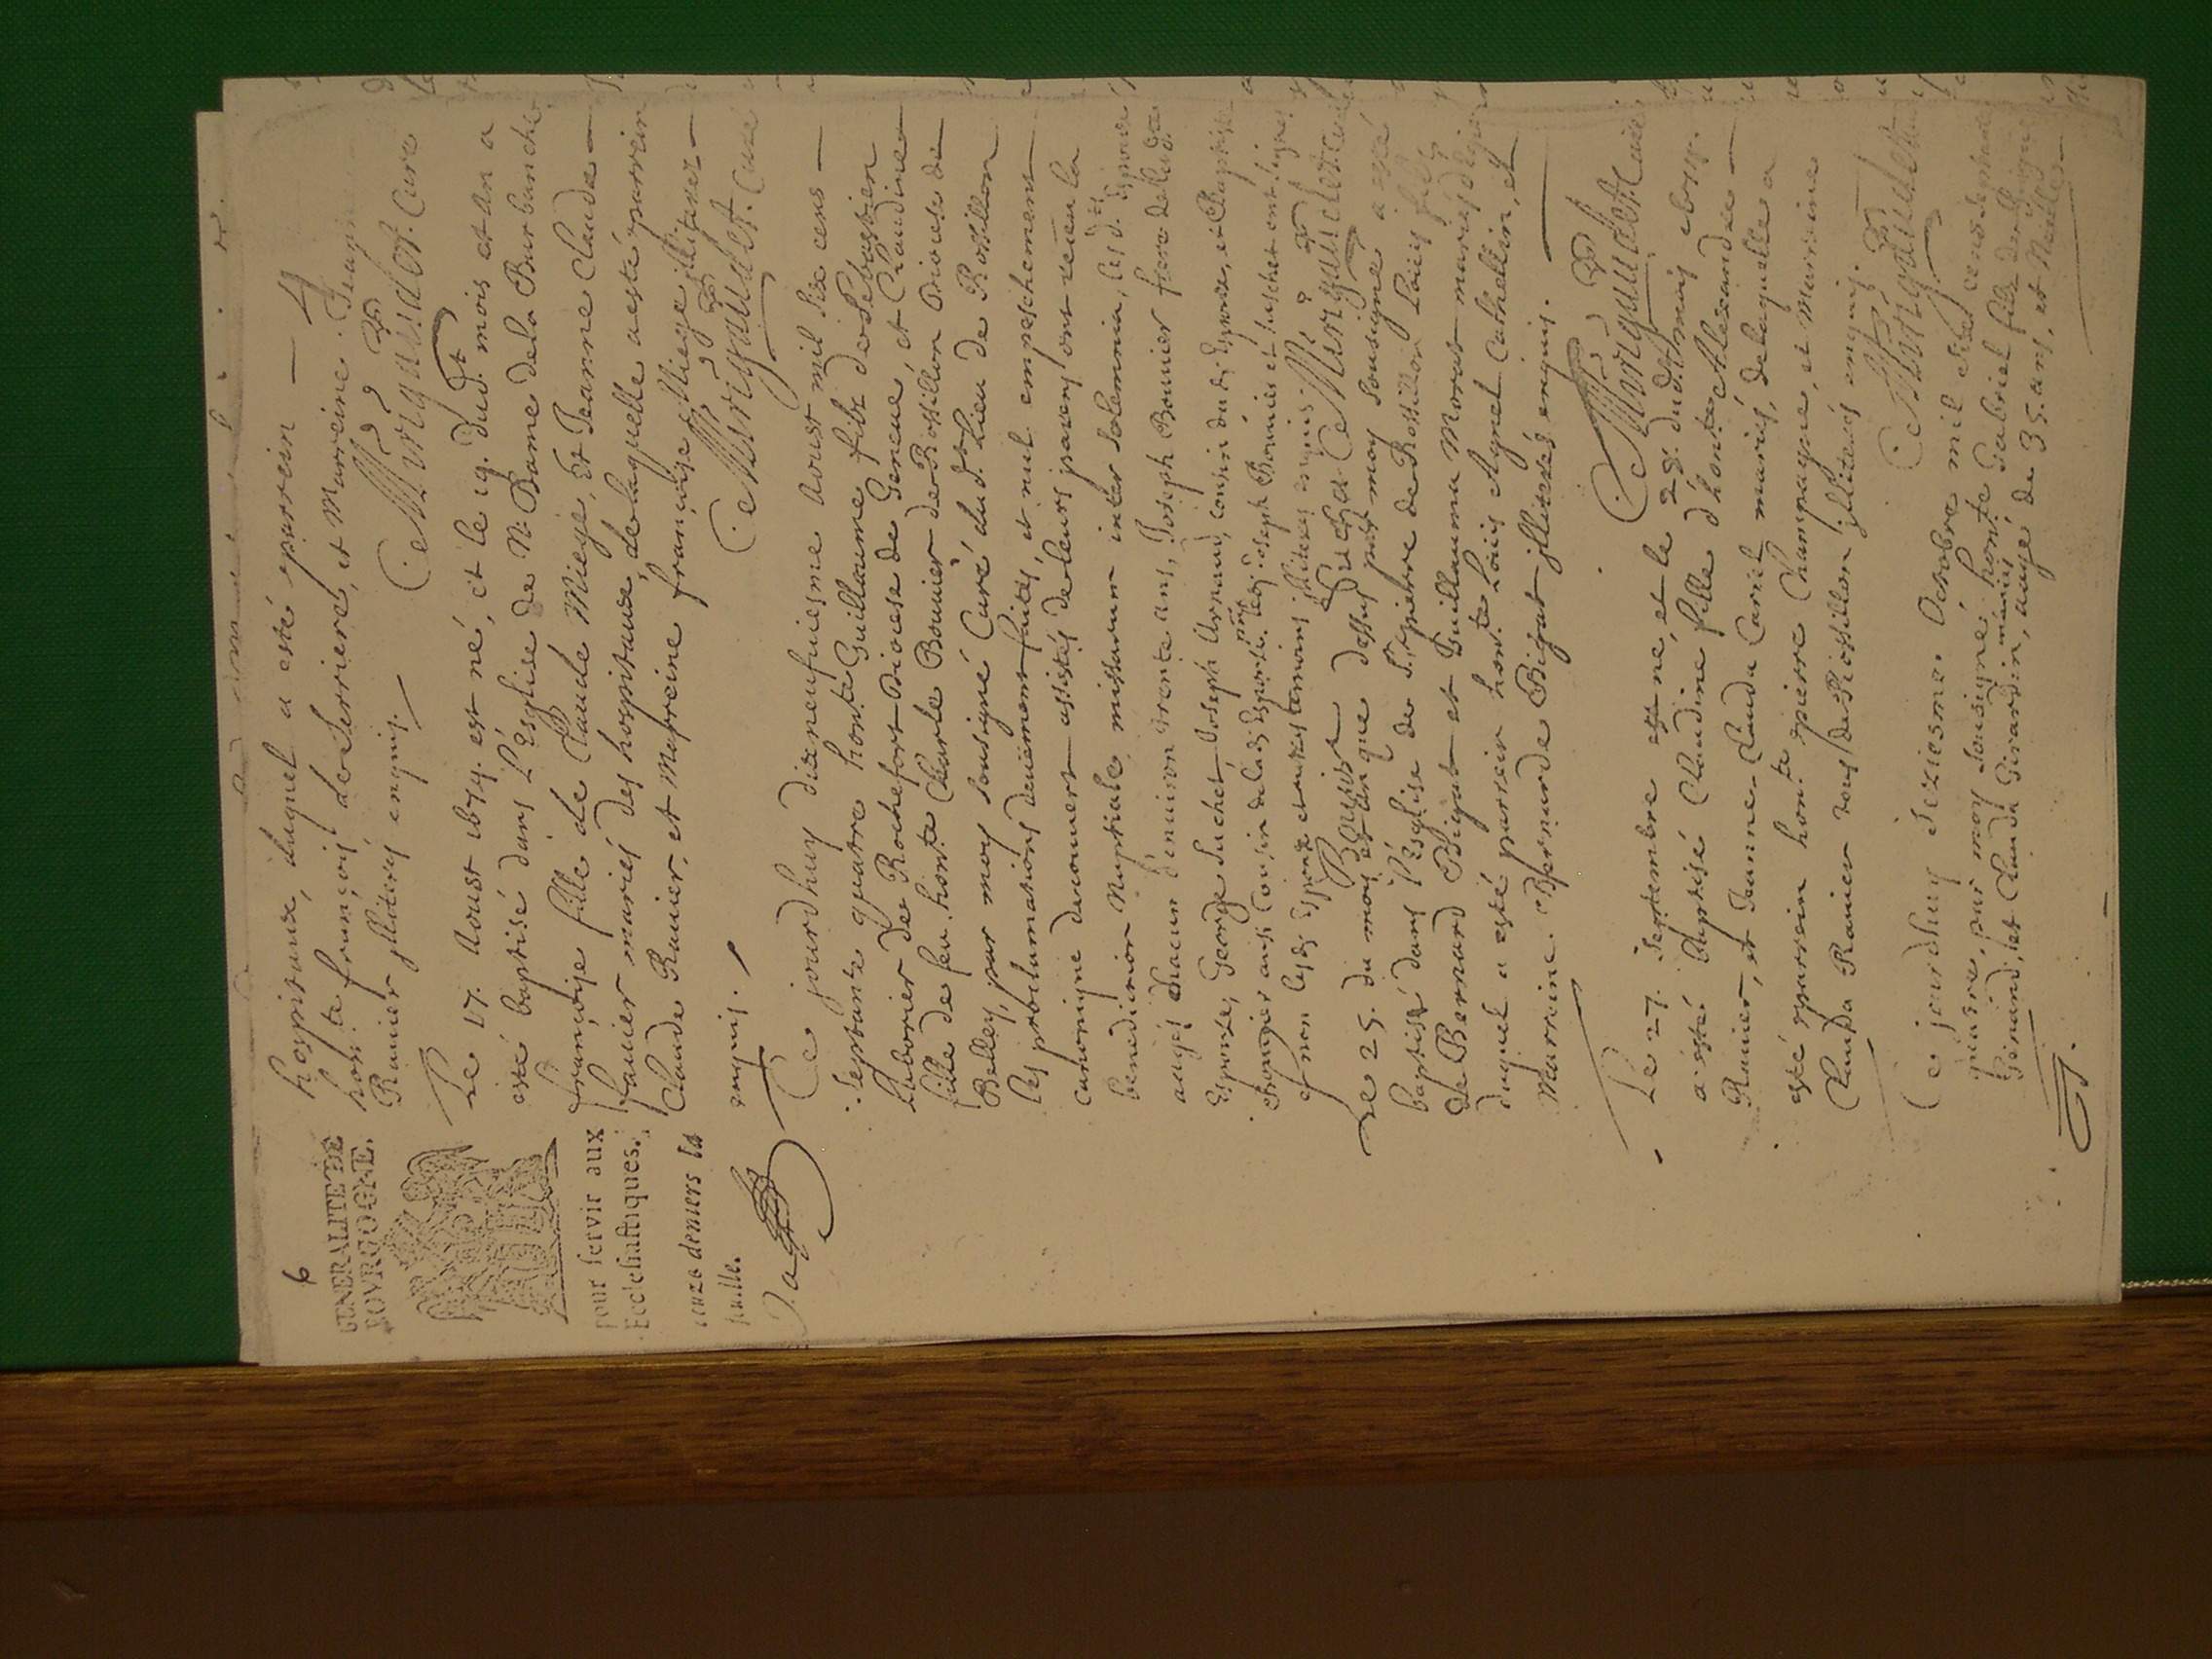 6
GENERALITE DE
BOVRGOGNE.
pour servir aux
Ecclesiastiques.
onze deniers la
fueille.
hospitaux, duquel a esté parrein —
hon.te françois de Serriere, et Marreine Jeanne
Ranier illiterés enquis. Marigaudet. Curé
Le 17. Aoust 1674. est né, et le 19. dud.t mois et an a
esté baptisé dans l'Esglise de N. Dame dela Burbanche
françoise fille de Claude Miege, Et Jeanne Claude —
fauier mariés des hospitaux, de laquelle a esté parrein
Claude Ranier, et Marreine françoise Miege illiterez —
enquis. Marigaudet. Curé
Ce jourdhuy dixneufuiesme Aoust mil six cens —
septante quatre hon.te Guillaume filz de Sebastien
laborier de Rochefort Diocese de Geneue, et Claudine
fille de feu hon.te Charle Bouuier de Rossillon Diocese de
Belley, par moy soussigné Curé dud.t Lieu de Rossillon
les proclamations deuëment faites, et nul empeschement —
canonique decouuert assistés de leurs parens ont receu la
benediction Nuptiale missarum inter solemnia, lesd.
aagés chacun d'enuiron trente ans, Joseph Bouuier frere de lad.
Espouse, George Suchet Joseph Arnaud, cousin dud. Espoux, et Baptiste
aussi Cousin de lad. Espouse. led. Joseph Bouuier et Suchet ont signes
et non lesd. Espoux et autres temoins illiteres enquis.
Bouuier Suchet Marigaudet Curé
Le 25. du mois et an que dessus par moy sousigné a esté
baptisé dans l'Esglise de S.t pierre de Rossillon Louis filz
de Bernard Bigat et Guillauma Morat mariés
duquel a esté parrein hon.te Louis Agnet Cathellin, et
Marreine Bernarde Bigat illiterés enquis.
Marigaudet Curé
Le 27. Septembre est né, et le 28. dud. mois
a esté Baptisé Claudine fille d'hon.te Alexandre —
Ranier, et Jeanne-Claude Carret mariés, de laquelle a
esté parrein hon.te pierre Champagne, et Marreine
Clauda Ranier tous de Rossillon illiterés enquis.
Marigaudet
Ce jourdhuy seziesme Octobre mil six cens septante
quatre, par moy sousigné hon.te Gabriel filz
Genand, et Clauda Girardin, mariés aagé de 35. ans, et